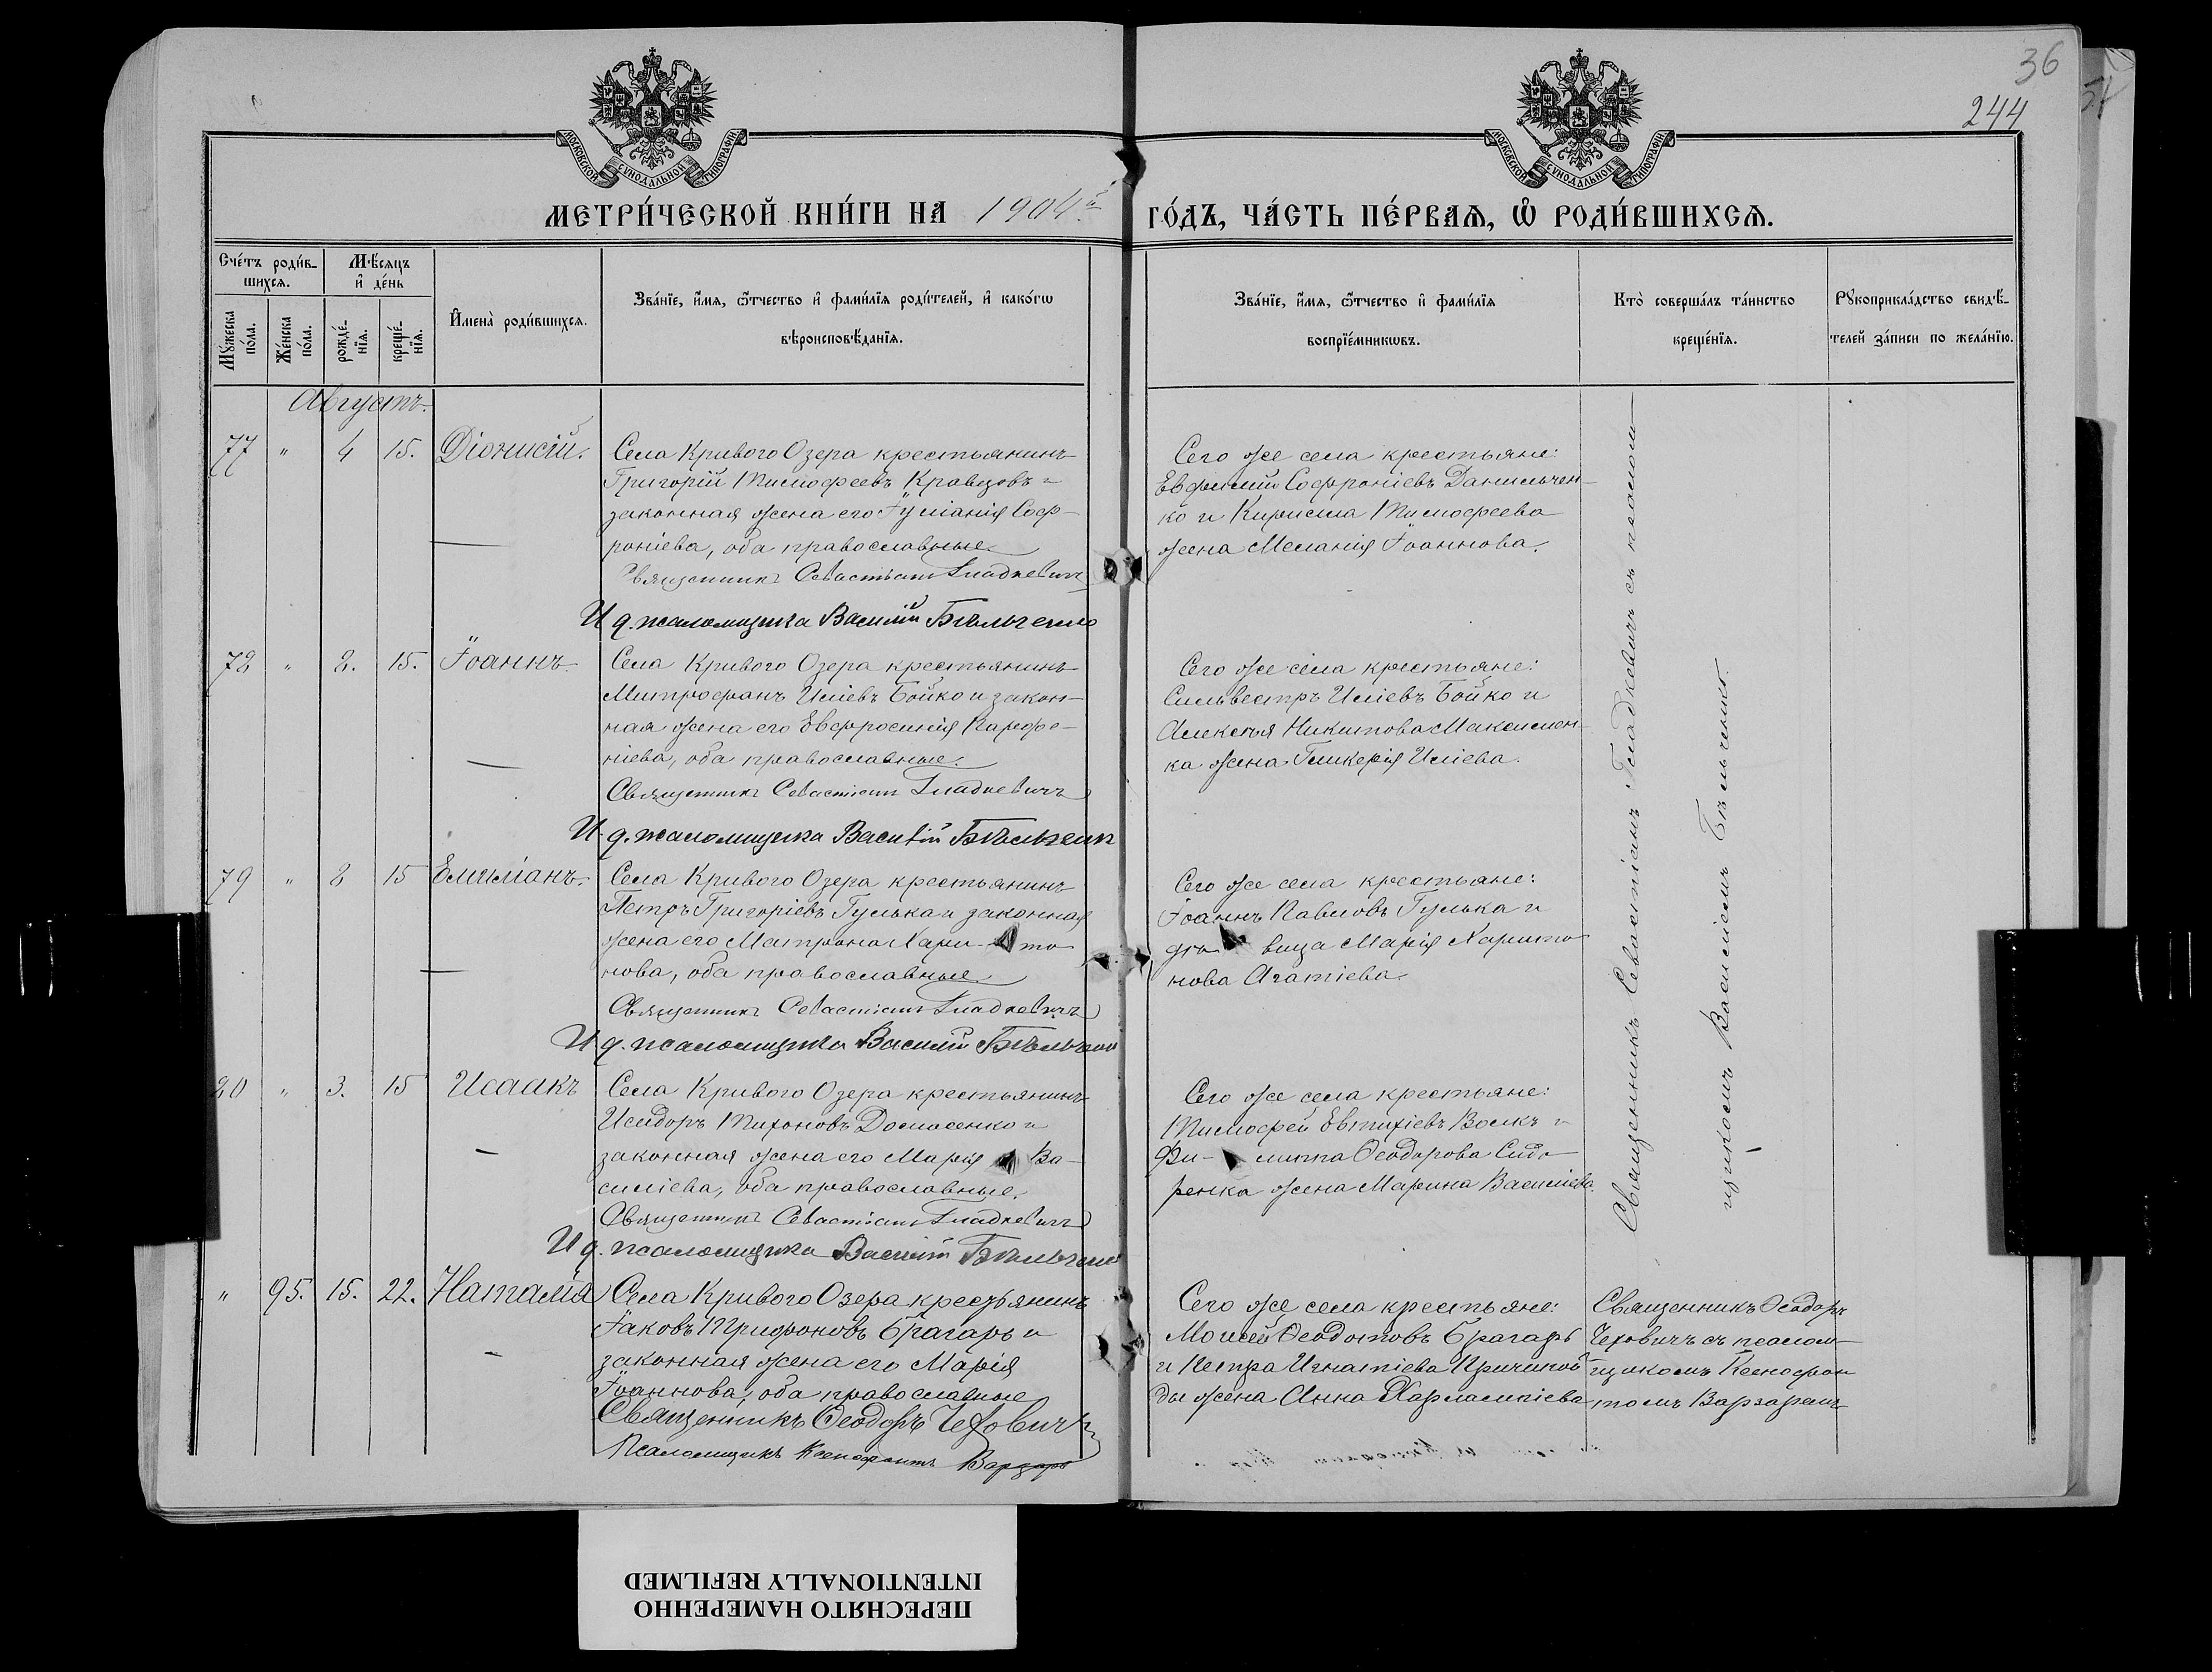 36
244
МОСКОВСКОЙ СѴНОДАЛЬНОЙ ТИПОГРАФІИ
МОСКОВСКОЙ СѴНОДАЛЬНОЙ ТИПОГРАФІИ
МЕТРИ́ЧЕСКОЙ КНИ́ГИ НА 1904й ГО́ДЪ, ЧА́СТЬ ПЕ́РВАѦ, Ѽ РОДИ́ВШИХСѦ.
Сче́тъ роди́в-
шихсѧ.
Мѣ́сяцъ
и҆ де́нь
Мꙋ́жеска по́ла.
Же́нска по́ла.
рожде́-
нїѧ.
креще́-
нїѧ.
И҆мена̀ роди́вшихсѧ.
Зва́нїе, и҆́мѧ, ѻ҆́тчество и҆ фами́лїѧ роди́телей, и҆ како́гѡ
вѣроисповѣ́данїѧ.
Зва́нїе, и҆́мѧ, ѻ҆́тчество и҆ фами́лїѧ
воспрїе́мникѡвъ.
Кто̀ соверша́лъ та́инство
креще́нїѧ.
Рꙋкоприкла́дство свидѣ́-
телей за́писи по жела́нїю.
Августъ.
77 " 4 15. Діонисій.
Села Криваго Озера крестьянинъ
Григорій Тимофеевъ Кравцовъ и
законная жена его Іуліанія Соф-
роніева, оба православные.
Священникъ Севастіанъ Гладкевичъ
И д. псаломщика Василій Бѣльченко
Сего же села крестьяне:
Евфимій Софроніевъ Данильчен-
ко и Кирилла Тимофеева
жена Меланія Іоаннова.
78 " 2. 15. Іоаннъ.
Села Криваго Озера крестьянинъ
Митрофанъ Иліевъ Бойко и закон-
ная жена его Евфросинія Парфе-
ніева, оба православные.
Священникъ Севастіанъ Гладкевичъ
И д. псаломщика Василій Бѣльченк
Сего же села крестьяне:
Сильвестръ Иліевъ Бойко и
Алексѣя Никитова Максимен-
ка жена Гликерія Иліева.
79 " 2 15 Емиліанъ.
Села Криваго Озера крестьянинъ
Петръ Григоріевъ Гулька и законная
жена его Матрона Хари- то
нова, оба православные.
Священникъ Севастіанъ Гладкевичъ
И д. псаломщика Василій Бѣльченко
Сего же села крестьяне:
Іоаннъ Павловъ Гулька и
дѣ вица Марія Харито
нова Агатіева.
80 " 3. 15 Исаакъ
Села Криваго Озера крестьянинъ
Исидоръ Тихоновъ и
законная жена его Марія Ва-
силіева, оба православные.
Священникъ Севастіанъ Гладкевичъ
И д. псаломщика Василій Бѣльченко
Сего же села крестьяне:
Тимофей Евтихіевъ Волкъ и
Фи- липпа Ѳеодорова Сидо
ренка жена Марина Василіева.
Священникъ Севастіанъ Гладкевичъ съ псалом-
щикомъ Василіемъ Бѣльченко.
" 95. 15. 22. Наталія
Села Криваго Озера крестьянинъ
Іаковъ Трифоновъ Брагарь и
законная жена его Марія
Іоаннова, оба православные
Священникъ Ѳеодоръ Чеховичъ
Псаломщикъ Ксенофонтъ Варзарь
Сего же села крестьяне:
Моисей Ѳеодотовъ Брагарь
и Петра Игнатіева
ды жена Анна Харлампіева
Священникъ Ѳеодоръ
Чеховичъ съ псалом-
щикомъ Ксенофон
томъ Варзаремъ
ПЕРЕСНЯТО НАМЕРЕННО
INTENTIONALLY REFILMED